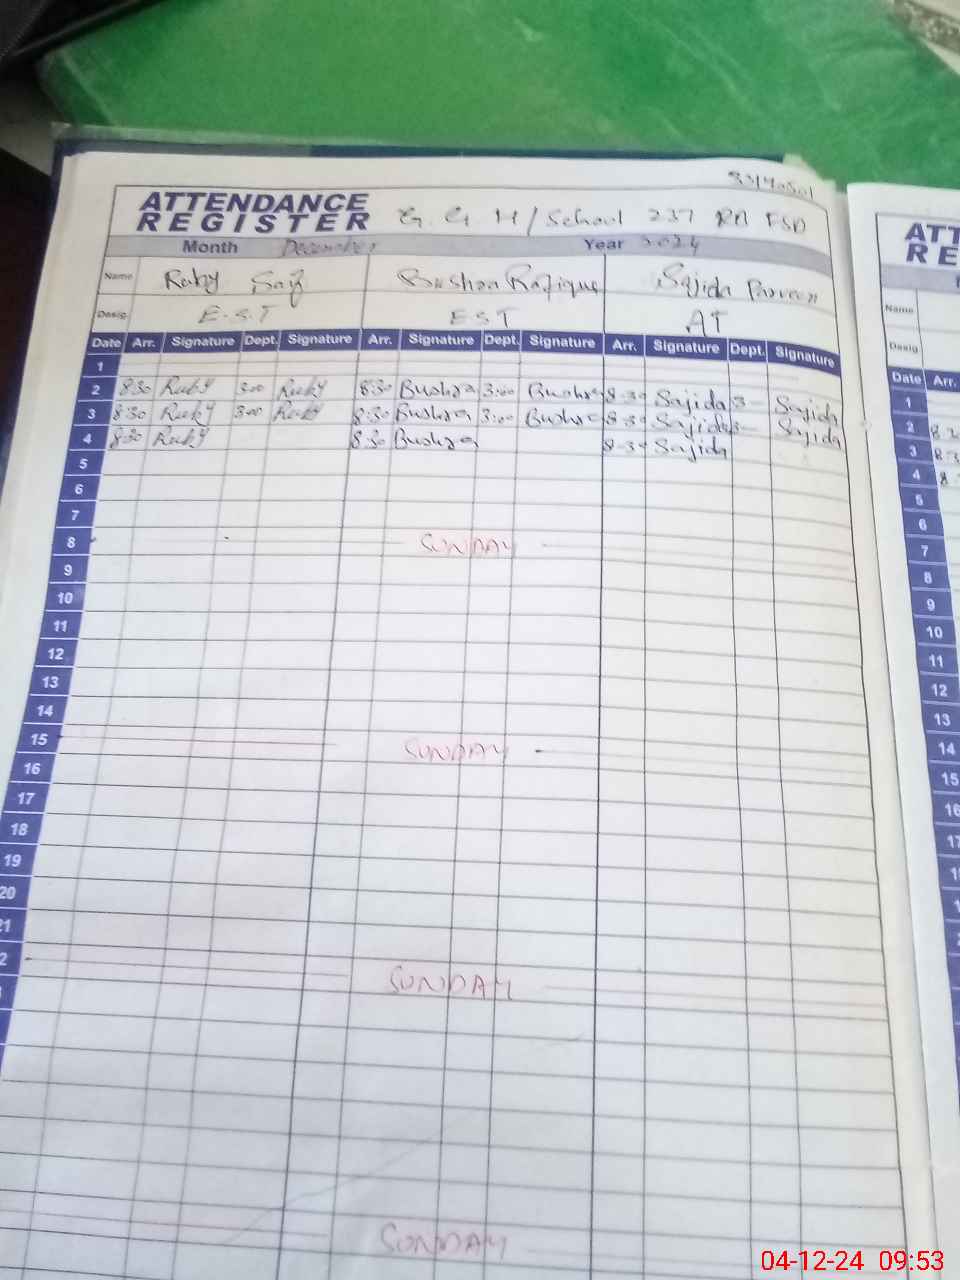 33140501
ATTENDANCE REGISTER G. G. H/School 237 RB FSD
Month December Year 2024
Name Ruby Saif Bushra Rafique Sajida Parveen
Desig. E.S.T EST AT
Date Arr. Signature Dept. Signature Arr. Signature Dept. Signature Arr. Signature Dept. Signature
1
2 8:30 Ruby 3:00 Ruby 8:30 Bushra 3:00 Bushra 8-30 Sajida 3- Sajida
3 8:30 Ruby 3:00 Ruby 8:30 Bushra 3:00 Bushra 8-30 Sajida 3- Sajida
4 8:30 Ruby 8:30 Bushra 8-30 Sajida
5
6
7
8 SUNDAY
9
10
11
12
13
14
15 SUNDAY
16
17
18
19
20
21
2 SUNDAY
SUNDAY
ATT
RE
Name
Desig
Date Arr.
1
2
3
4
5
6
7
8
9
10
11
12
13
14
15
16
04-12-24 09:53